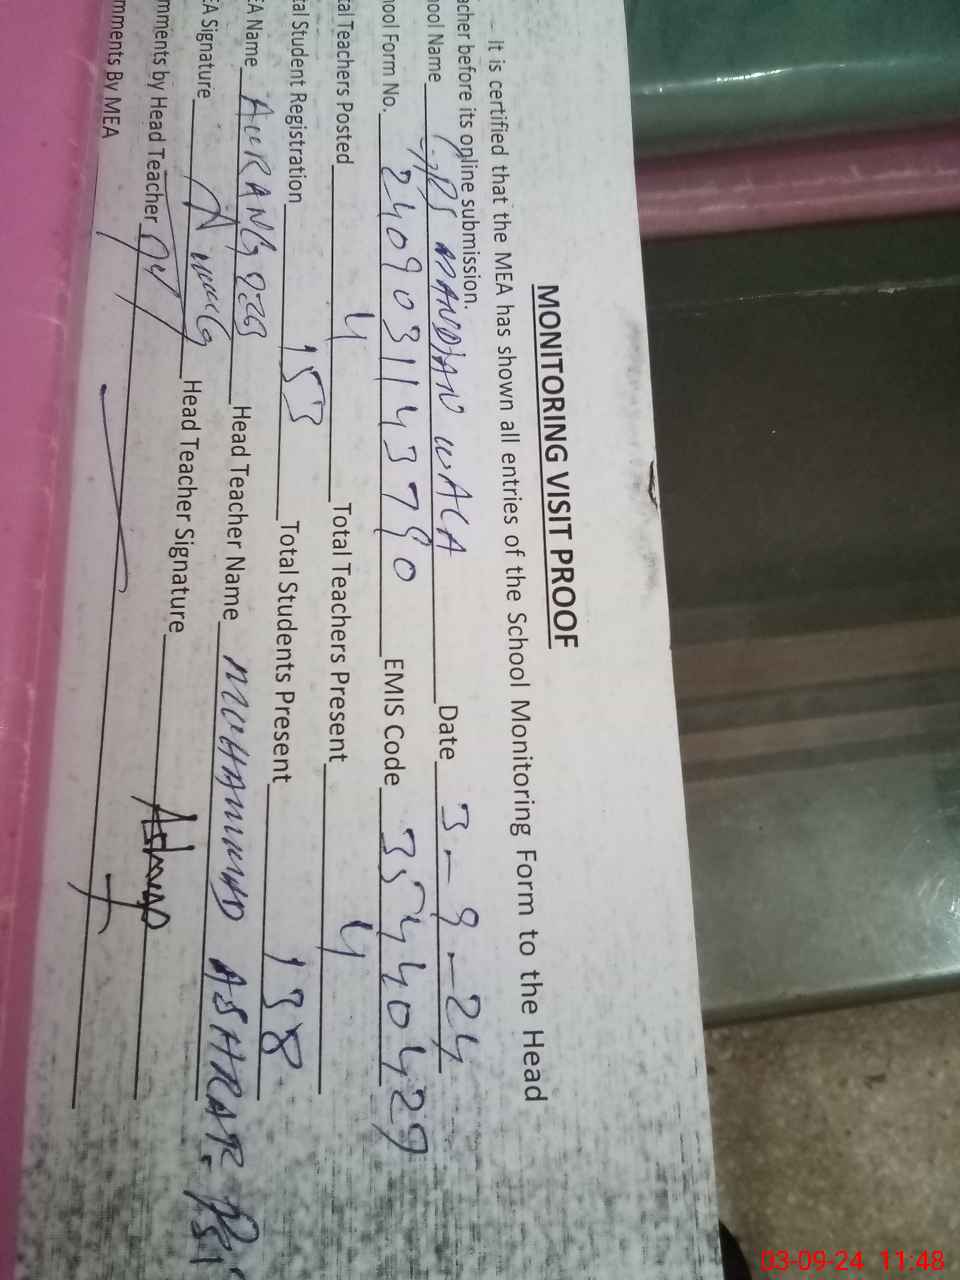 MONITORING VISIT PROOF
It is certified that the MEA has shown all entries of the School Monitoring Form to the Head
acher before its online submission.
ool Name GPS MANDIAN WALA Date 3-9-24
ool Form No. 2409031143790 EMIS Code 35440429
tal Teachers Posted 4 Total Teachers Present 4
tal Student Registration 153 Total Students Present 138
EA Name AURANGZEB Head Teacher Name MUHAMMAD ASHRAF
EA Signature Head Teacher Signature Ashraf
mments by Head Teacher
mments By MEA
03-09-24 11:48